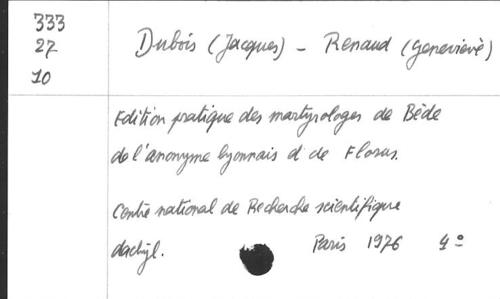 333
27
10
Dubois (Jacques) - Renaud (Geneviève)
Edition pratique des martyrologes de Bède
de l'anonyme lyonnais et de Florus.
Centre national de Recherche scientifique
dactyl. Paris 1976 4°